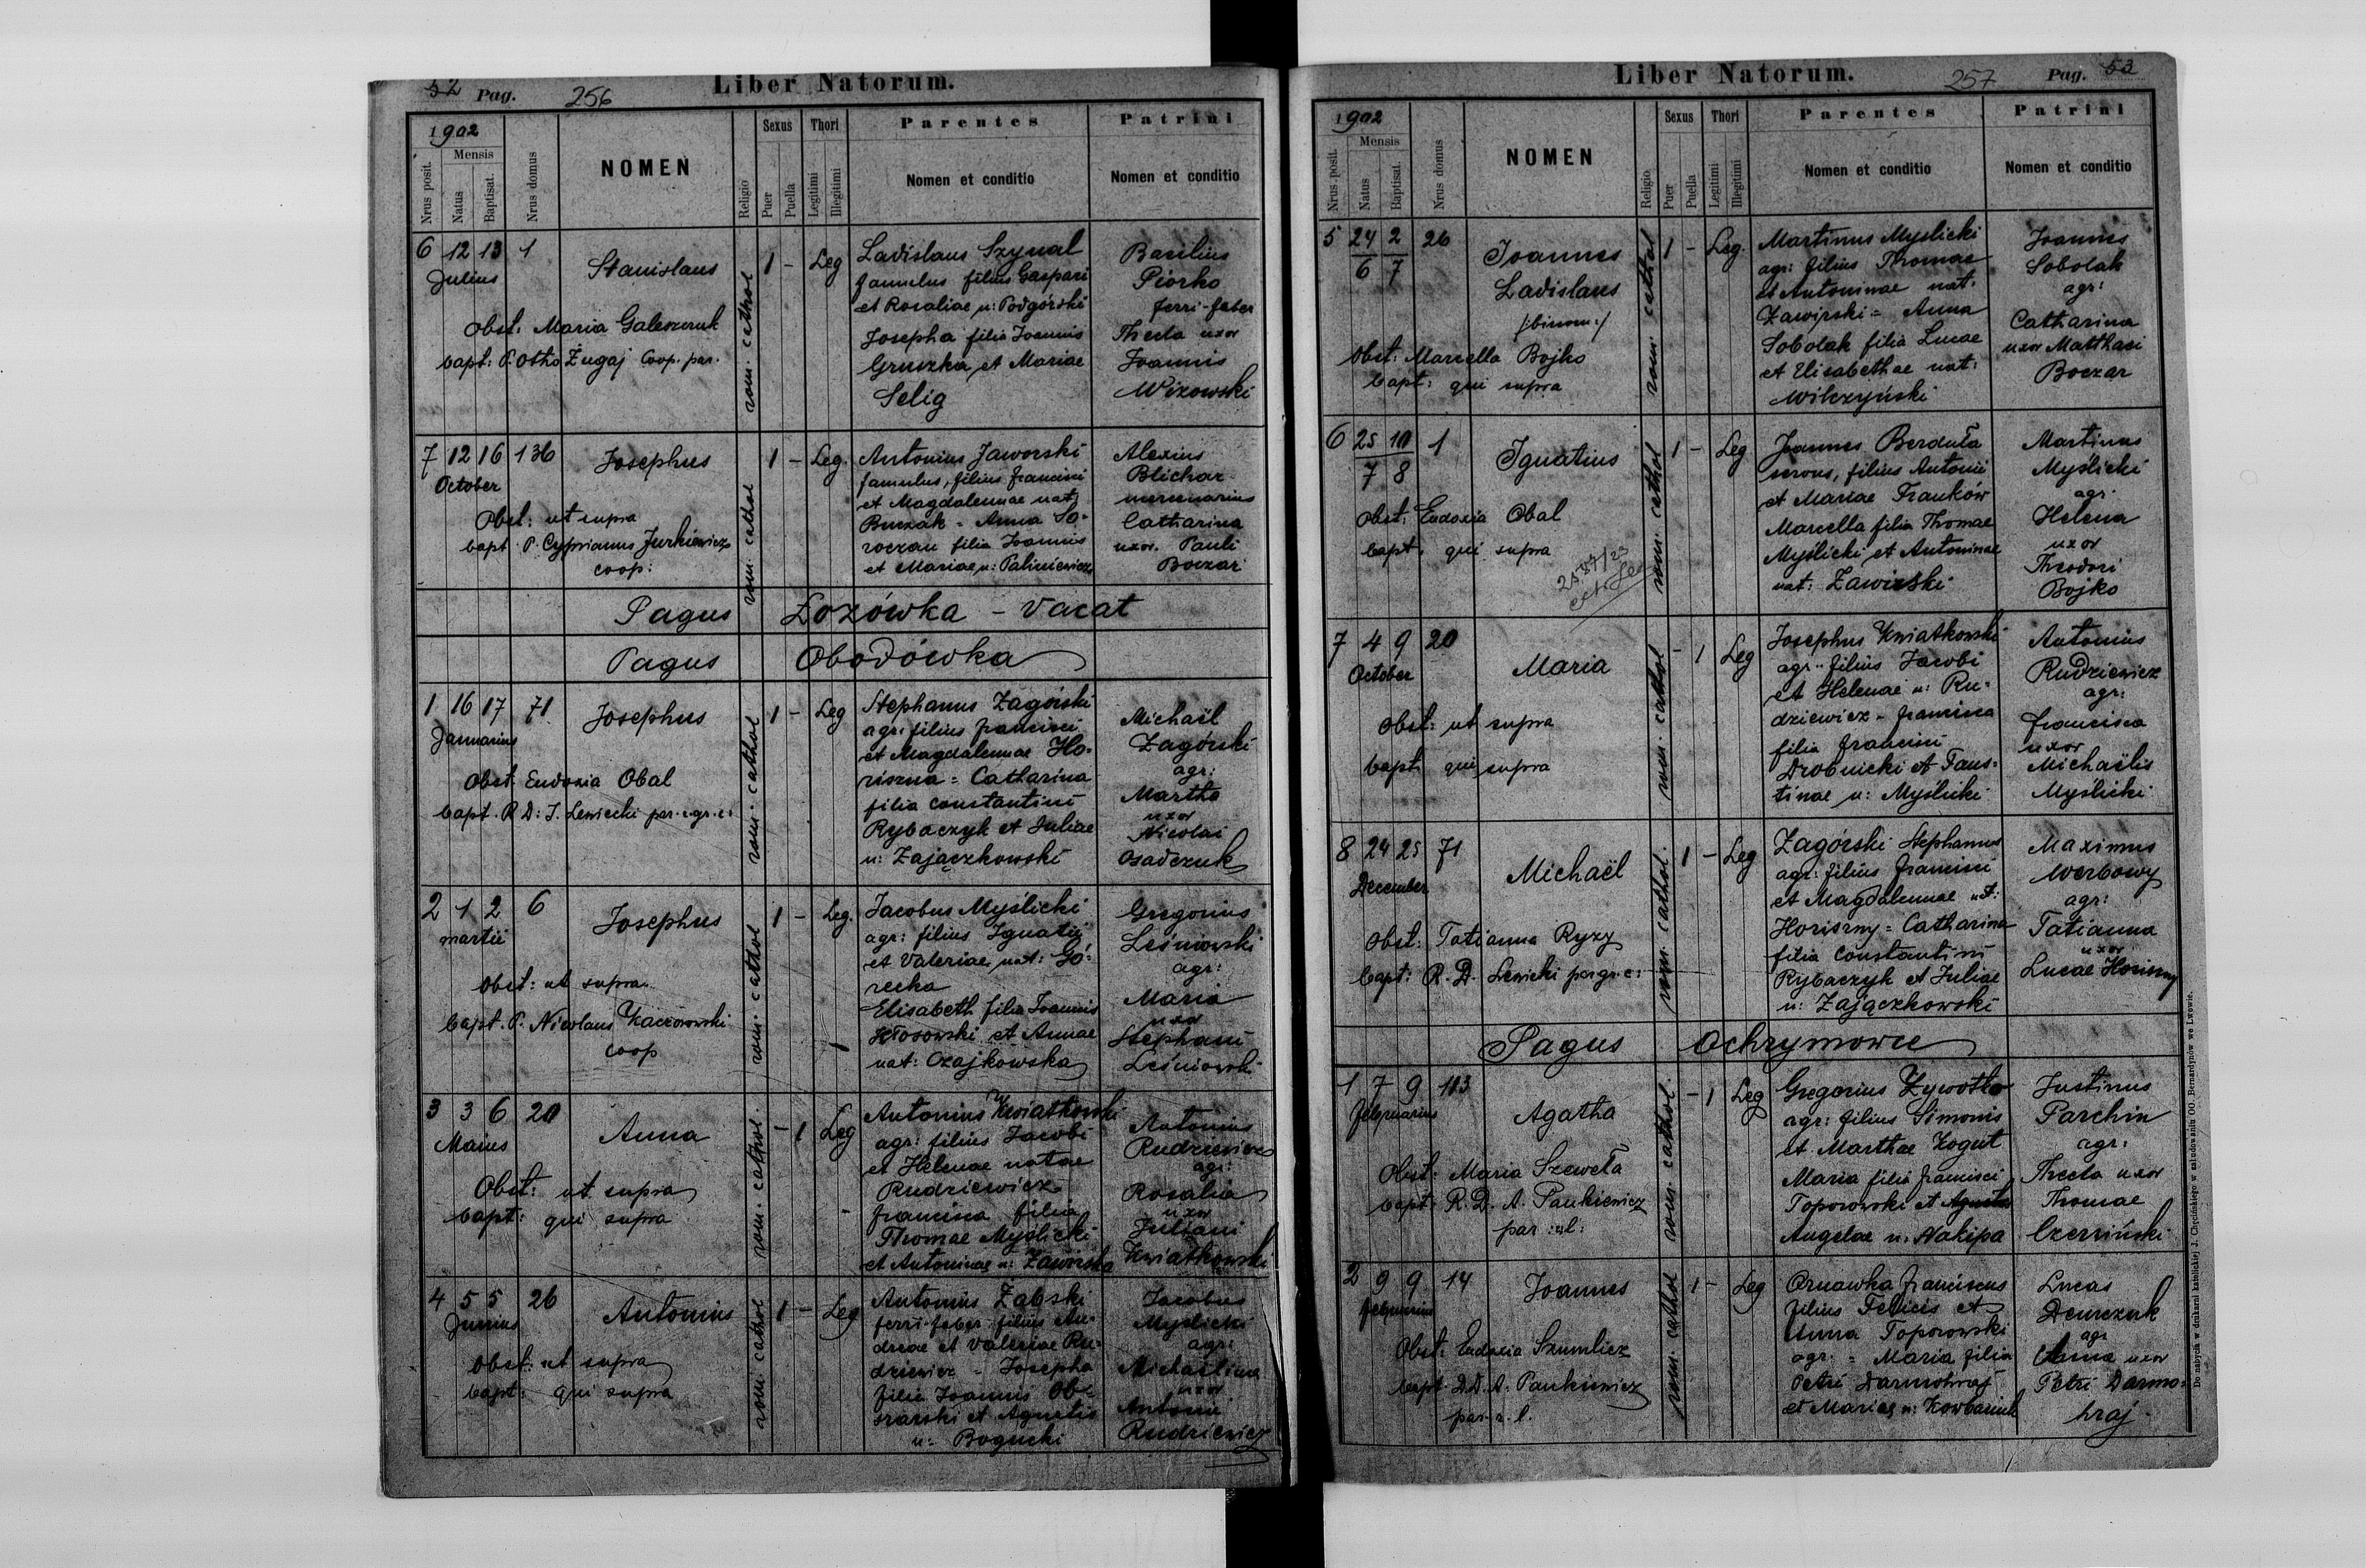 52 Pag. 256 Liber Natorum.
1902
Nrus posit.
Mensis
Natus
Baptisat.
Nrus domus
NOMEN
Religio
Sexus
Puer
Puella
Thori
Legitimi
Illegitimi
Parentes
Nomen et conditio
Patrini
Nomen et conditio
6 12 13 1
Julius
Stanislaus
Obst: Maria Galeszczuk
bapt: P. Otho Żugaj Coop. par.
rom. cathol
1 - Leg
Ladislaus Szynal
famulus filius Gaspari
et Rosaliae n: Podgórski
Josepha filia Joannis
Gruszka et Mariae
Selig
Basilius
Piórko
ferri-faber
Thecla uxor
Joannis
Wizowski
7 12 16 136
October
Josephus
Obst: ut supra
bapt. P. Cyprianus Jurkiewicz
coop:
rom. cathol
1 - Leg.
Antonius Jaworski
famulus, filius Francisci
et Magdalennae nat:
Burzak - Anna So-
roczan filia Joannis
et Mariae n: Paliniewicz
Alexius
Blichar
mercenarius
Catharina
uxor. Pauli
Boczar
Pagus Łozówka - Vacat
Pagus Obodówka
1 16 17 71
Januarius
Josephus
Obst. Eudoxia Obal
bapt. R. D: J. Lewicki par. gr. c:
rom. cathol
1 - Leg
Stephanus Zagórski
agr: filius Francisci
et Magdalennae Ho-
riszna = Catharina
filia Constantini
Rybaczyk et Juliae
n: Zajączkowski
Michaël
Zagórski
agr:
Martha
uxor
Nicolai
Osadczuk
2 1 2 6
Martii
Josephus
Obst: ut supra.
bapt. P. Nicolaus Kaczorowski
coop
rom. cathol
1 - Leg.
Jacobus Myślicki
agr: filius Ignatii
et Valeriae nat: Gó-
recka
Elisabeth filia Joannis
Kłosowski et Annae
nat: Czajkowska
Gregorius
Leśniowski
agr:
Maria
uxor
Stephani
Leśniowski
3 3 6 20
Maius
Anna
Obst: ut supra
bapt: qui supra
rom. cathol.
- 1 Leg
Antonius Kwiatkowski
agr: filius Jacobi
et Helenae natae
Rudziewicz
Francisca filia
Thomae Myślicki
et Antoninae n: Zawirska
Antonius
Rudziewicz
agr:
Rosalia
uxor
Juliani
Kwiatkowski
4 5 5 26
Junius
Antonius
Obst: ut supra
bapt: qui supra
rom. cathol
1 - Leg
Antonius Żabski
ferri-faber filius An-
dreae et Valeriae Ru-
dziewicz - Josepha
filia Joannis Ob-
szarski et Agnetis
n: Bogucki
Jacobus
Myślicki
agr:
Michaëlina
uxor
Antonii
Rudziewicz
Liber Natorum. 257 Pag. 53
1902
Nrus posit.
Mensis
Natus
Baptisat.
Nrus domus
NOMEN
Religio
Sexus
Puer
Puella
Thori
Legitimi
Illegitimi
Parentes
Nomen et conditio
Patrini
Nomen et conditio
5 24 2 26
6 7
Joannes
Ladislaus
/binom:/
Obst: Marcella Bojko
bapt: qui supra
rom. cathol
1 - Leg.
Martinus Myślicki
agr: filius Thomae
et Antoninae nat:
Zawirski = Anna
Sobolak filia Lucae
et Elisabethae nat:
Wilczyński
Joannes
Sobolak
agr:
Catharina
uxor Matthaei
Boczar
6 25 10 1
7 8
Ignatius
Obst: Eudoxia Obal
bapt. qui supra
rom. cathol
1 - Leg
Joannes Berduła
servus, filius Antonii
et Mariae Franków
Marcella filia Thomae
Myślicki et Antoninae
nat: Zawirski
Martinus
Myślicki
agr.
Helena
uxor
Theodori
Bojko
7 4 9 20
October
Maria
Obst: ut supra
bapt. qui supra
rom. cathol
- 1 Leg
Josephus Kwiatkowski
agr: filius Jacobi
et Helenae n: Ru-
dziewicz - Francisca
filia Francisci
Drobnicki et Faus-
tinae n: Myślicki
Antonius
Rudziewicz
agr:
Francisca
uxor
Michaëlis
Myślicki
8 24 25 71
December
Michaël
Obst: Tatianna Ryzy
bapt: R. D. Lewicki par gr. c:
rom. cathol.
1 - Leg
Zagórski Stephanus
agr: filius Francisci
et Magdalennae nat:
Horiszny = Catharina
filia Constantini
Rybaczyk et Juliae
n: Zajączkowski
Maximus
Werbowy
agr:
Tatianna
uxor
Lucae Horiszny
Pagus Ochrymowce
1 7 9 113
Februarius
Agatha
Obst: Maria Szeweła
bapt. R. D. A. Pankiewicz
par. r. l:
rom. cathol.
- 1 Leg
Gregorius Żywotko
agr: filius Simonis
et Marthae Kogut
Maria filia Francisci
Toporowski et
Angelae n. Nakipa
Justinus
Parchin
agr:
Thecla uxor
Thomae
Czerwiński
2 9 9 14
Februarius
Joannes
Obst: Eudoxia Szumlicz
bapt. D.D. A. Pankiewicz
par. r. l.
rom. cathol
1 - Leg
Ornawka Franciscus
filius Felicis et
Anna Toporowski
agr. = Maria filia
Petri Darmohraj
et Mariae n: Kowbasiuk
Lucas
Demczuk
agr
Anna uxor
Petri Darmo-
hraj
Do nabycia w drukarni katolickiej J. Chęcińskiego w zabudowaniu OO. Bernardynów we Lwowie.